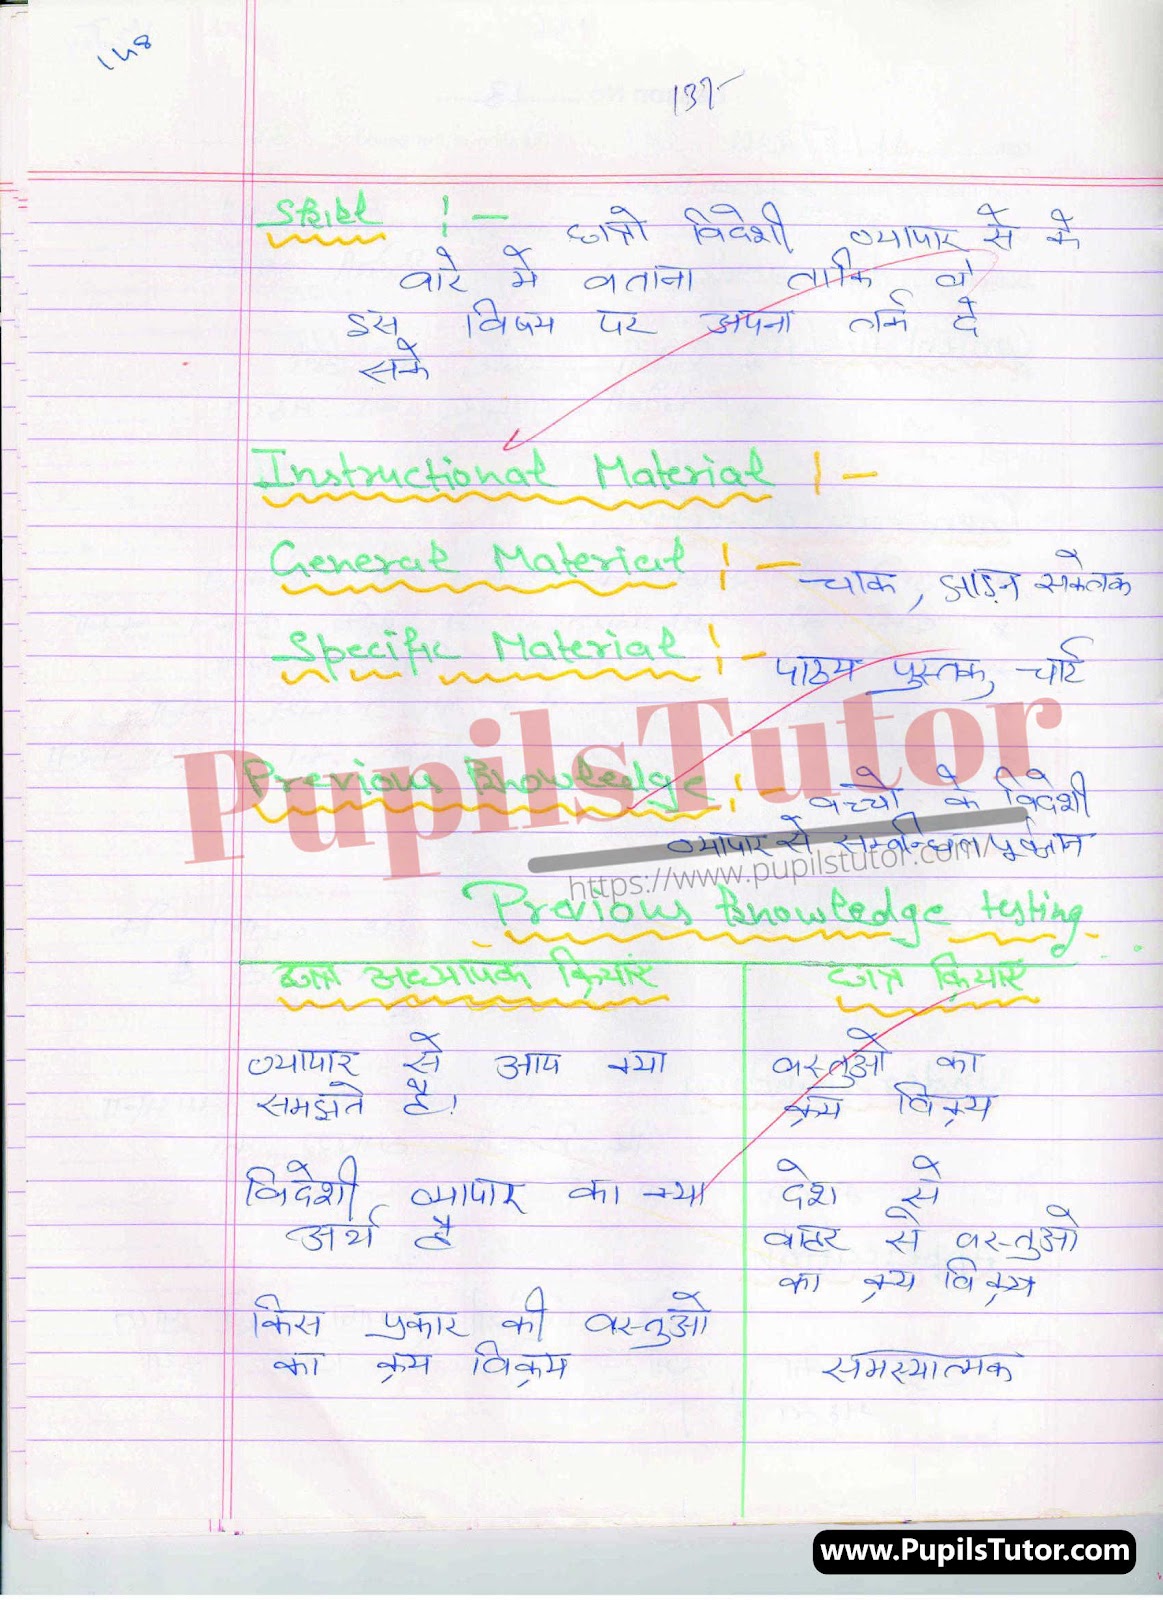 148
137
Skill :- छात्रो विदेशी व्यापार से के
बारे मे बताना ताकि वे
इस विषय पर अपना तर्क दे
सके
Instructional Material :-
General Material :- चाक, झाड़न संकेतक
Specific Material :- पाठ्य पुस्तक, चार्ट
PupilsTutor
Previous Knowledge :- बच्चो के विदेशी
व्यापार से सम्बन्धित पूर्वज्ञान
https://www.pupilstutor.com/
Previous Knowledge testing
छात्र अध्यापक क्रियाएं
व्यापार से आप क्या
समझते है।
विदेशी व्यापार का क्या
अर्थ है
किस प्रकार की वस्तुओ
का क्रय विक्रय
छात्र क्रियाएं
वस्तुओ का
क्रय विक्रय
देश से
बाहर से वस्तुओ
का क्रय विक्रय
समस्यात्मक
www.PupilsTutor.com